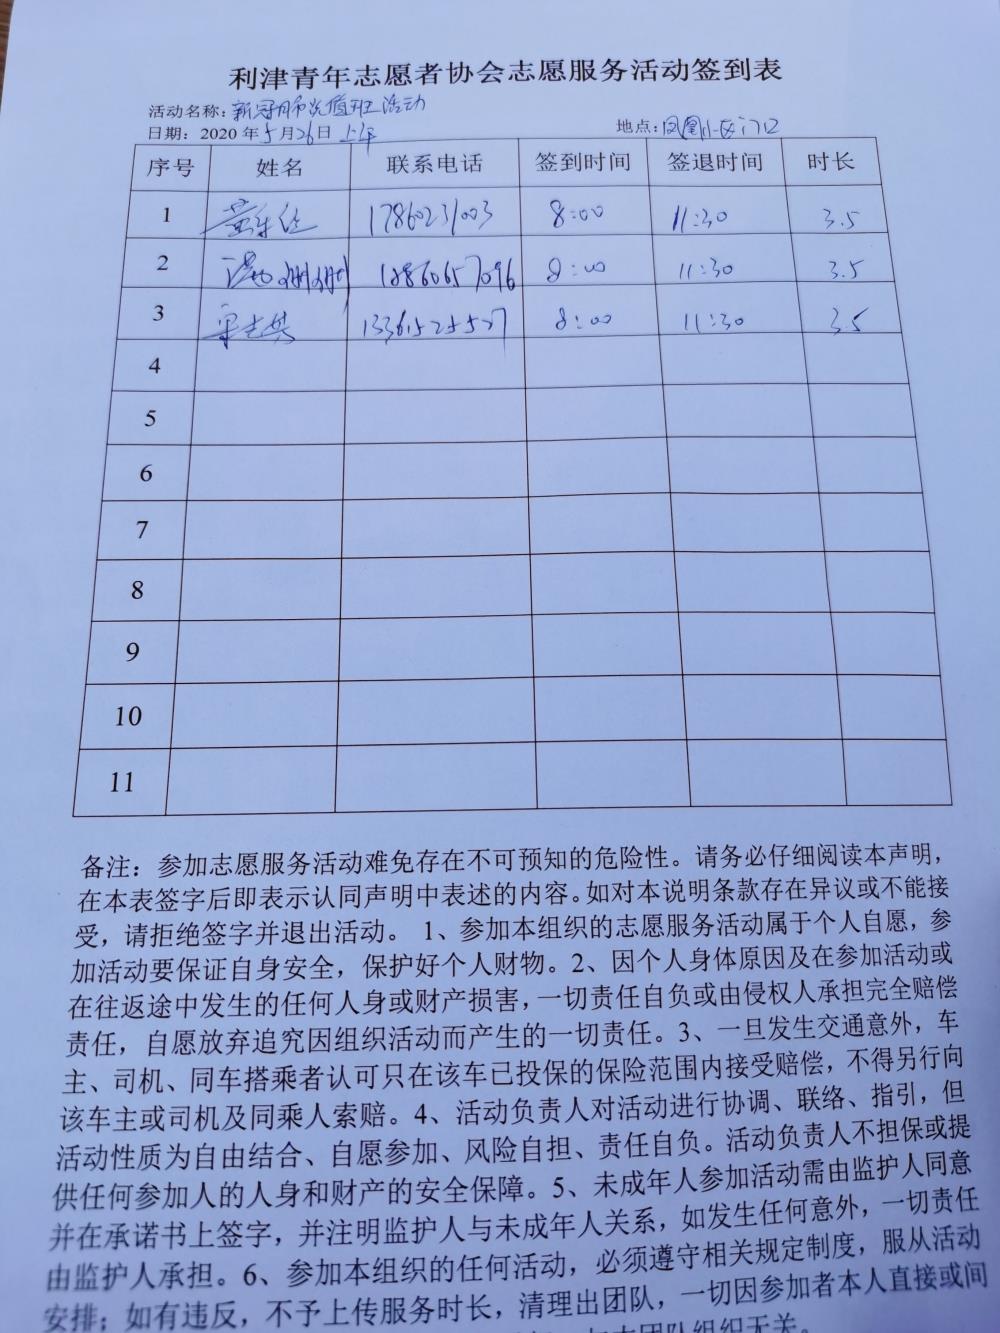 利津青年志愿者协会志愿服务活动签到表
活动名称：新冠肺炎值班活动
日期：2020年5月26日 上午 地点：凤凰小区门口
序号 姓名 联系电话 签到时间 签退时间 时长
1 17860231003 8:00 11:30 3.5
2 18860657096 8:00 11:30 3.5
3 13361525527 8:00 11:30 3.5
4
5
6
7
8
9
10
11
备注：参加志愿服务活动难免存在不可预知的危险性。请务必仔细阅读本声明，
在本表签字后即表示认同声明中表述的内容。如对本说明条款存在异议或不能接
受，请拒绝签字并退出活动。 1、参加本组织的志愿服务活动属于个人自愿，参
加活动要保证自身安全，保护好个人财物。2、因个人身体原因及在参加活动或
在往返途中发生的任何人身或财产损害，一切责任自负或由侵权人承担完全赔偿
责任，自愿放弃追究因组织活动而产生的一切责任。3、一旦发生交通意外，车
主、司机、同车搭乘者认可只在该车已投保的保险范围内接受赔偿，不得另行向
该车主或司机及同乘人索赔。4、活动负责人对活动进行协调、联络、指引，但
活动性质为自由结合、自愿参加、风险自担、责任自负。活动负责人不担保或提
供任何参加人的人身和财产的安全保障。5、未成年人参加活动需由监护人同意
并在承诺书上签字，并注明监护人与未成年人关系，如发生任何意外，一切责任
由监护人承担。6、参加本组织的任何活动，必须遵守相关规定制度，服从活动
安排；如有违反，不予上传服务时长，清理出团队，一切因参加者本人直接或间
团队组织无关。